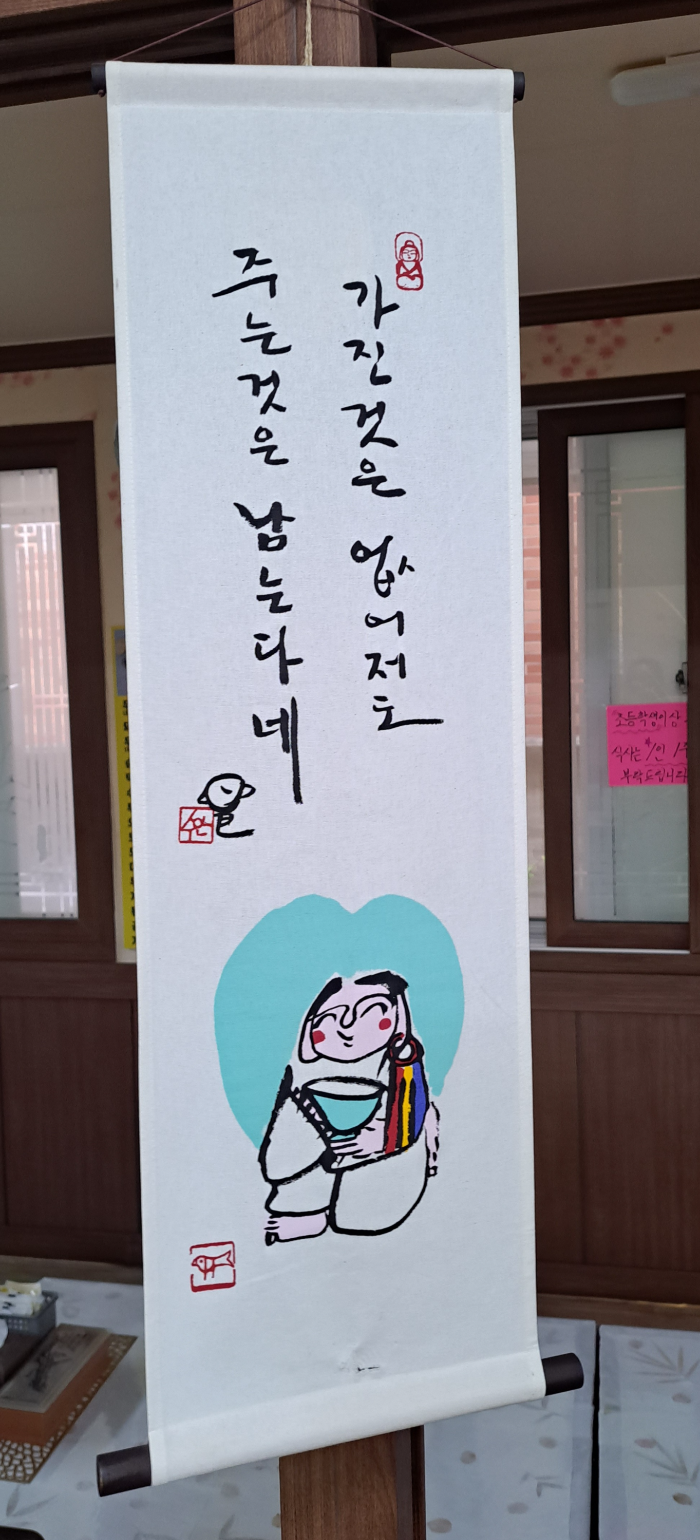 가진것은 없어져도
주는것은 남는다네
초등학생이상
식사는 1인 1
부탁드립니다